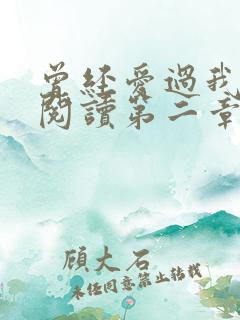 曾經愛過我
閱讀第二章
顧大石
未經同意禁止轉載